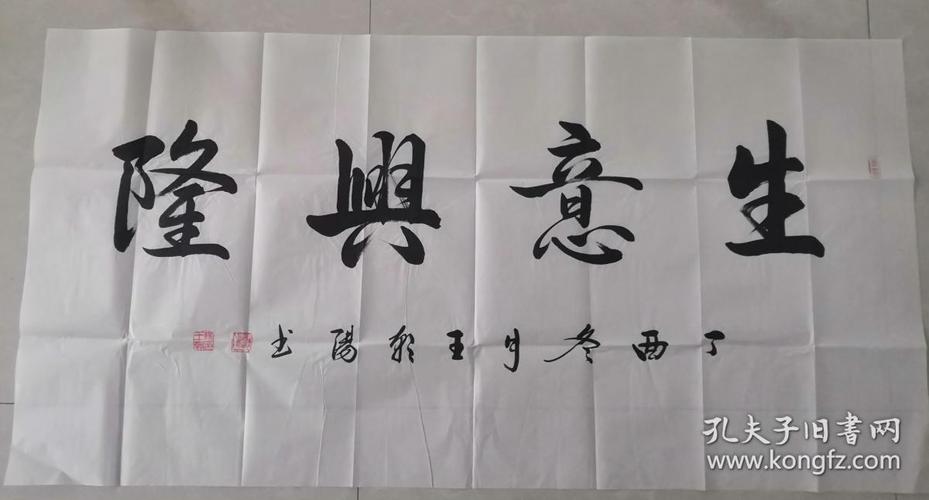 生意興隆
丁酉冬月王彩陽书
孔夫子旧書网
www.kongfz.com